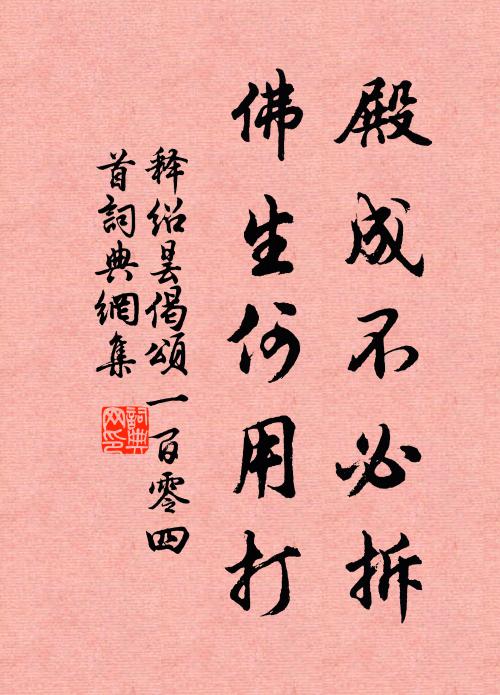 殿成不必拆
佛生何用打
释绍昙偈颂一百零四
首詞典網集
詞典
网印